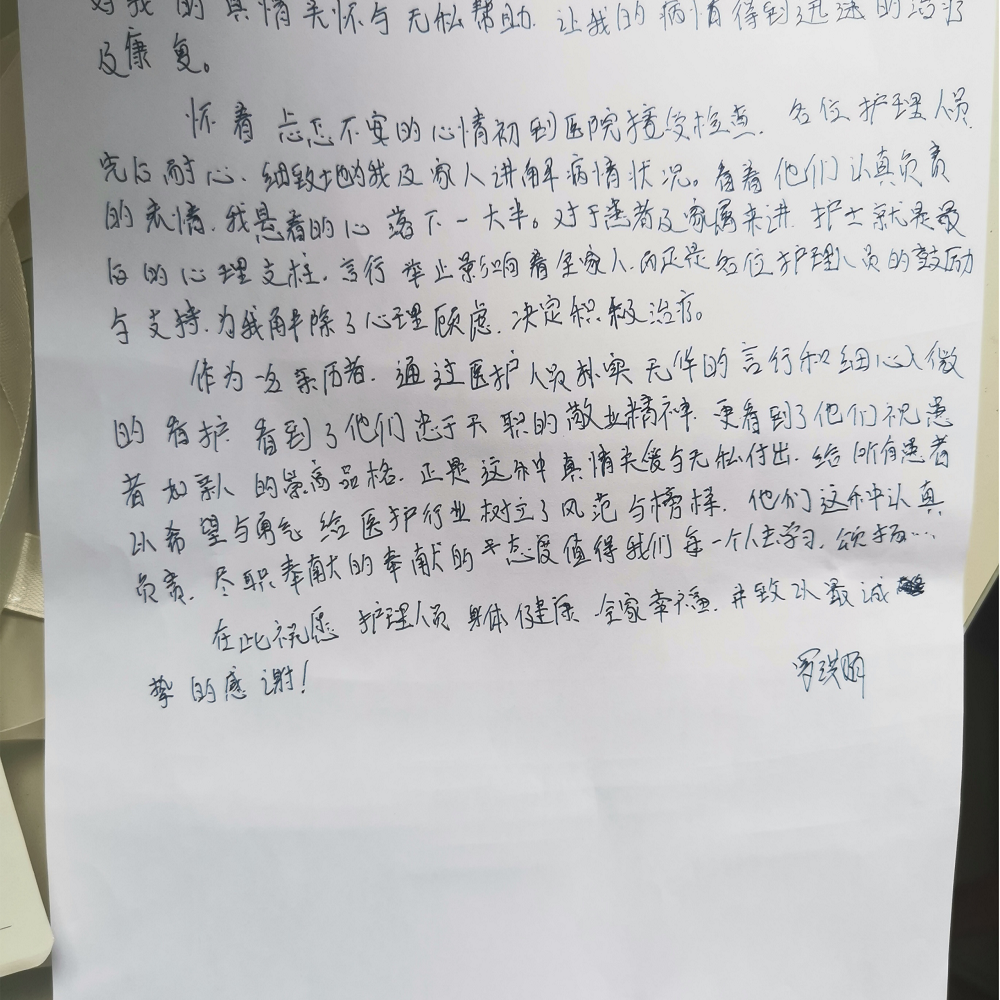 对我的真情关怀与无私帮助.让我的病情得到迅速的治疗
及康复。
怀着忐忑不安的心情初到医院接受检查.各位护理人员
耐心、细致地为我及家人讲解病情状况。看着他们认真负责
的表情.我悬着的心落下一大半。对于患者及家属来讲.护士就是最
后的心理支柱.言行举止影响着全家人.而正是各位护理人员的鼓励
与支持.为我解除了心理顾虑.决定积极治疗。
作为一名亲历者.通过医护人员朴实无华的言行和细心入微
的看护.看到了他们忠于天职的敬业精神.更看到了他们视患
者如亲人的崇高品格.正是这种真情关爱与无私付出.给所有患者
以希望与勇气.给医护行业树立了风范与榜样.他们这种认真
负责.尽职奉献的奉献的态度值得我们每一个人去学习.颂扬…
在此祝愿护理人员身体健康.全家幸福.并致以最诚
挚的感谢!